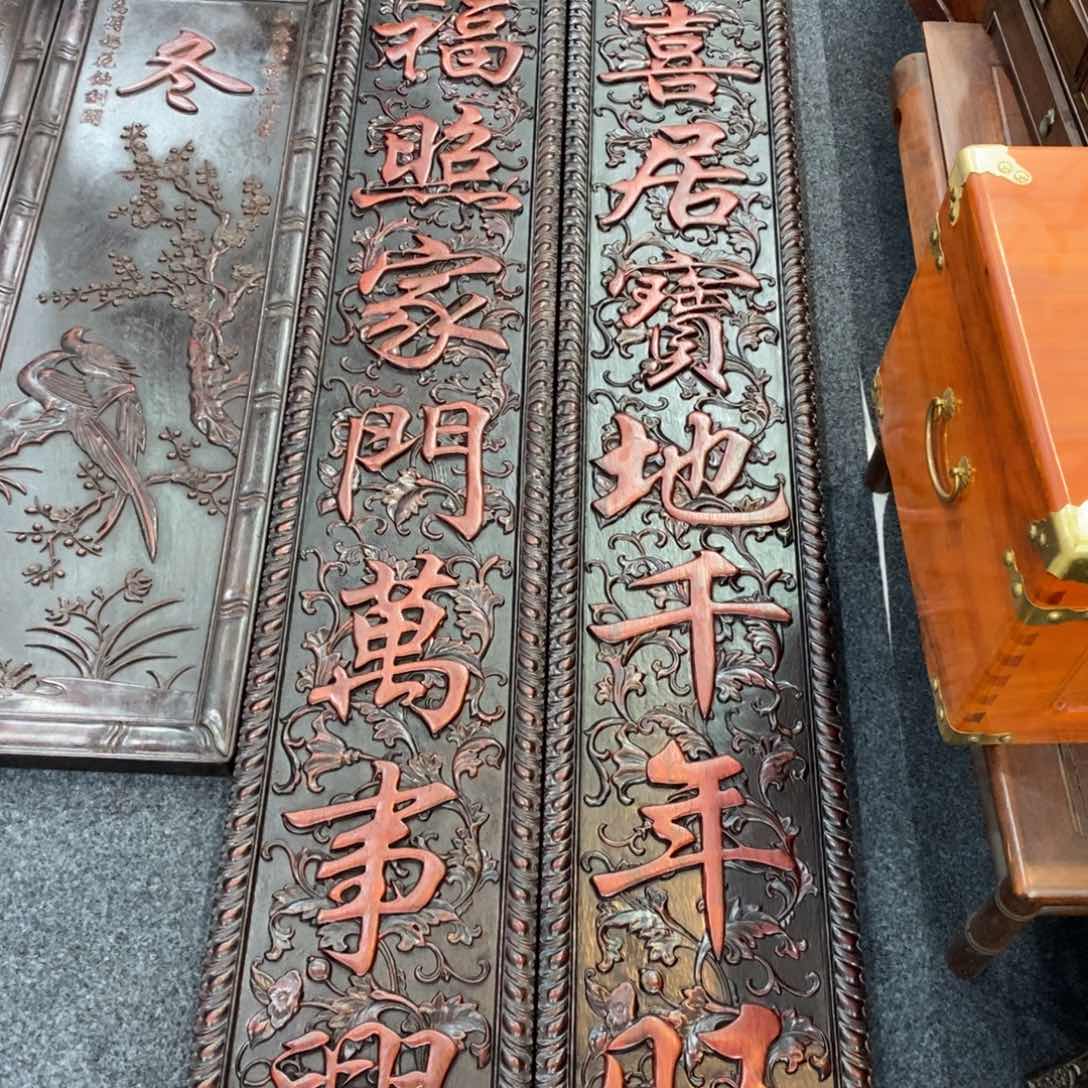 喜居寶地千年
福照家門萬事
冬